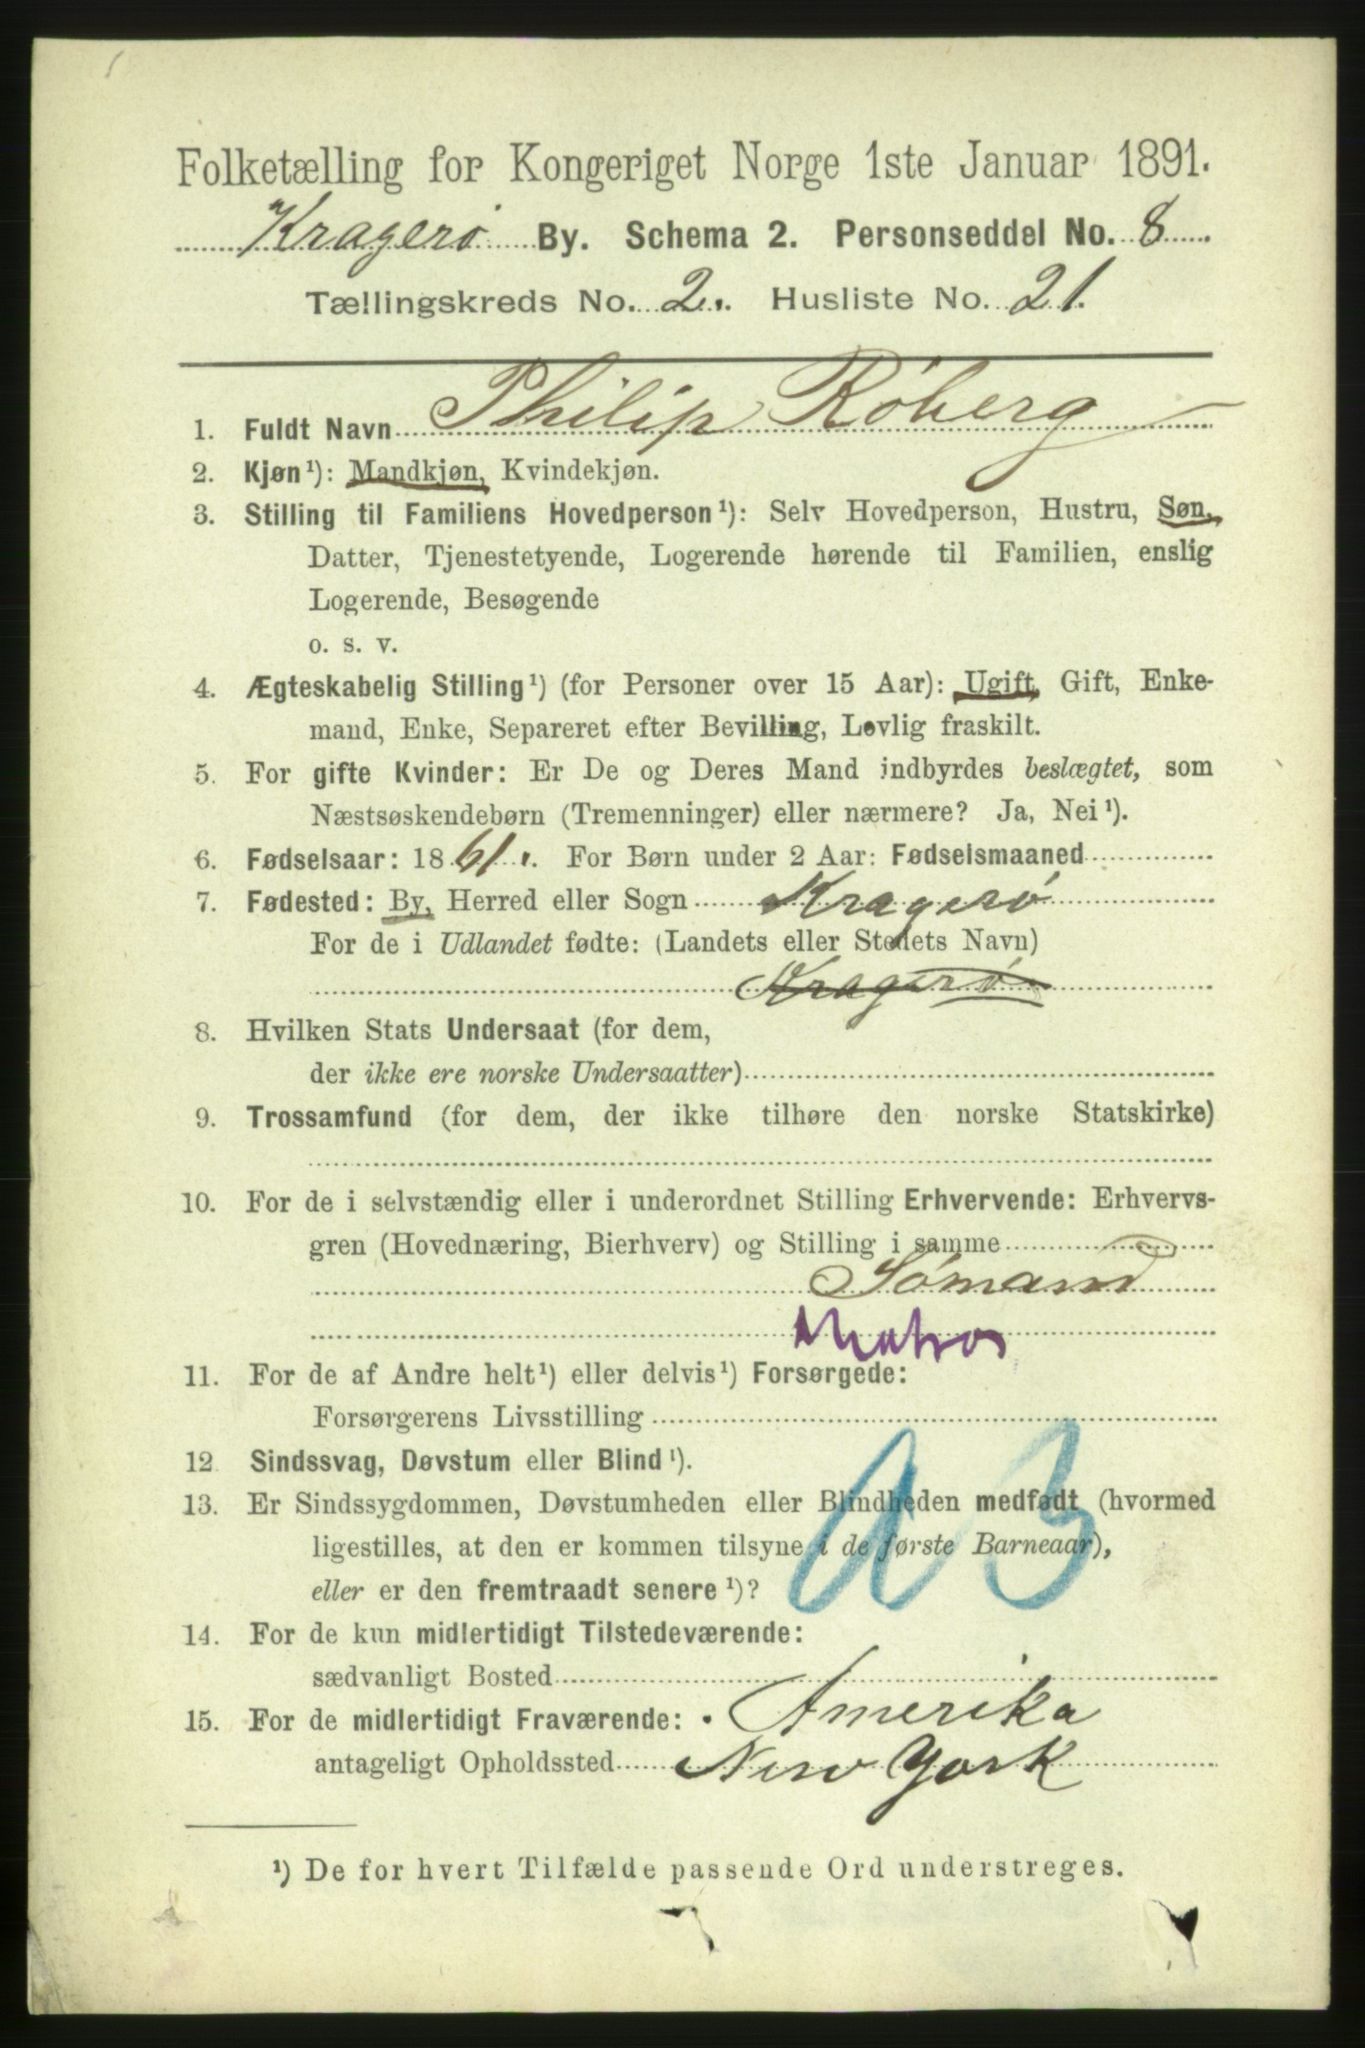 Folketælling for Kongeriget Norge 1ste Januar 1891.
Kragerø By. Schema 2. Personseddel No. 8
Tællingskreds No. 2. Husliste No. 21.
1. Fuldt Navn Philip Róberg
2. Kjøn¹): Mandkjøn, Kvindekjøn.
3. Stilling til Familiens Hovedperson¹): Selv Hovedperson, Hustru, Søn,
Datter, Tjenestetyende, Logerende hørende til Familien, enslig
Logerende, Besøgende
o. s. v.
4. Ægteskabelig Stilling¹) (for Personer over 15 Aar): Ugift, Gift, Enke-
mand, Enke, Separeret efter Bevilling, Lovlig fraskilt.
5. For gifte Kvinder: Er De og Deres Mand indbyrdes beslægtet, som
Næstsøskendebørn (Tremenninger) eller nærmere? Ja, Nei¹).
6. Fødselsaar: 1861. For Børn under 2 Aar: Fødselsmaaned
7. Fødested: By, Herred eller Sogn Krageró
For de i Udlandet fødte: (Landets eller Stedets Navn)
Krageró
8. Hvilken Stats Undersaat (for dem,
der ikke ere norske Undersaatter)
9. Trossamfund (for dem, der ikke tilhøre den norske Statskirke)
10. For de i selvstændig eller i underordnet Stilling Erhvervende: Erhvervs-
gren (Hovednæring, Bierhverv) og Stilling i samme
Sómand
Matros
11. For de af Andre helt¹) eller delvis¹) Forsørgede:
Forsørgerens Livsstilling
12. Sindssvag, Døvstum eller Blind¹).
13. Er Sindssygdommen, Døvstumheden eller Blindheden medfødt (hvormed
ligestilles, at den er kommen tilsyne i de første Barneaar),
eller er den fremtraadt senere¹)?
14. For de kun midlertidigt Tilstedeværende:
sædvanligt Bosted
15. For de midlertidigt Fraværende: Amerika
antageligt Opholdssted New York
¹) De for hvert Tilfælde passende Ord understreges.